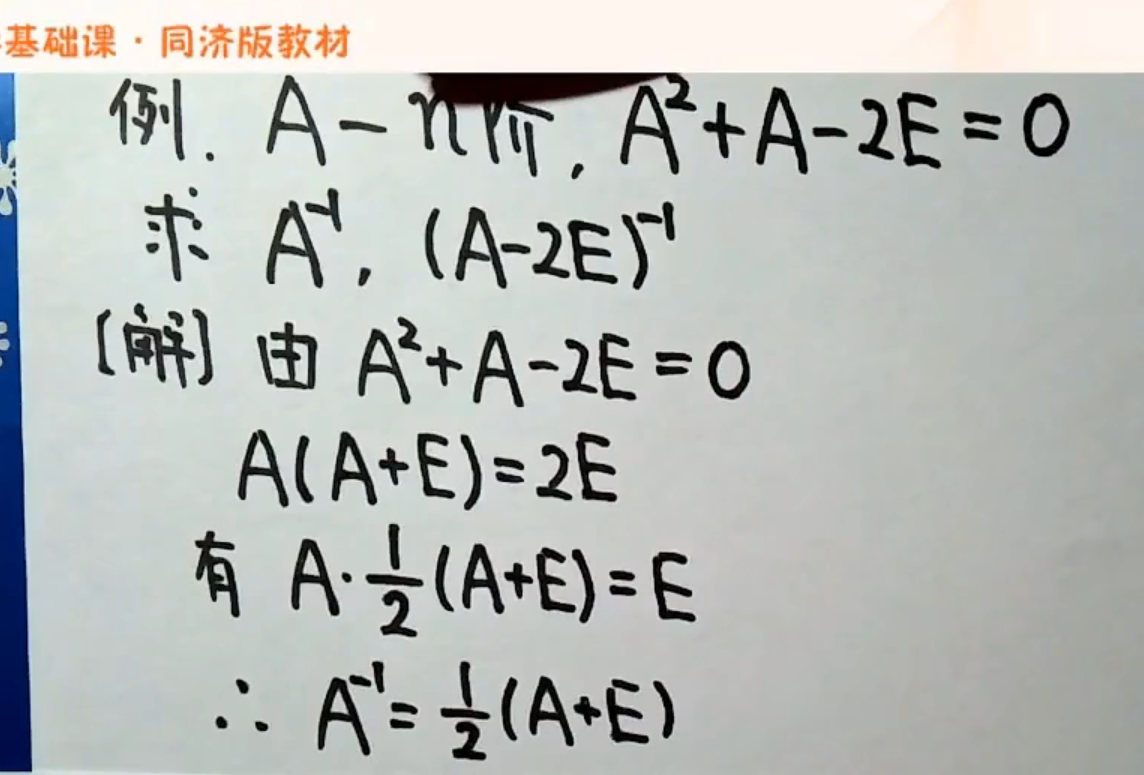 基础课·同济版教材
例. A-n阶, A²+A-2E=0
求 A⁻¹, (A-2E)⁻¹
[解] 由 A²+A-2E=0
A(A+E)=2E
有 A·1/2(A+E)=E
∴ A⁻¹=1/2(A+E)